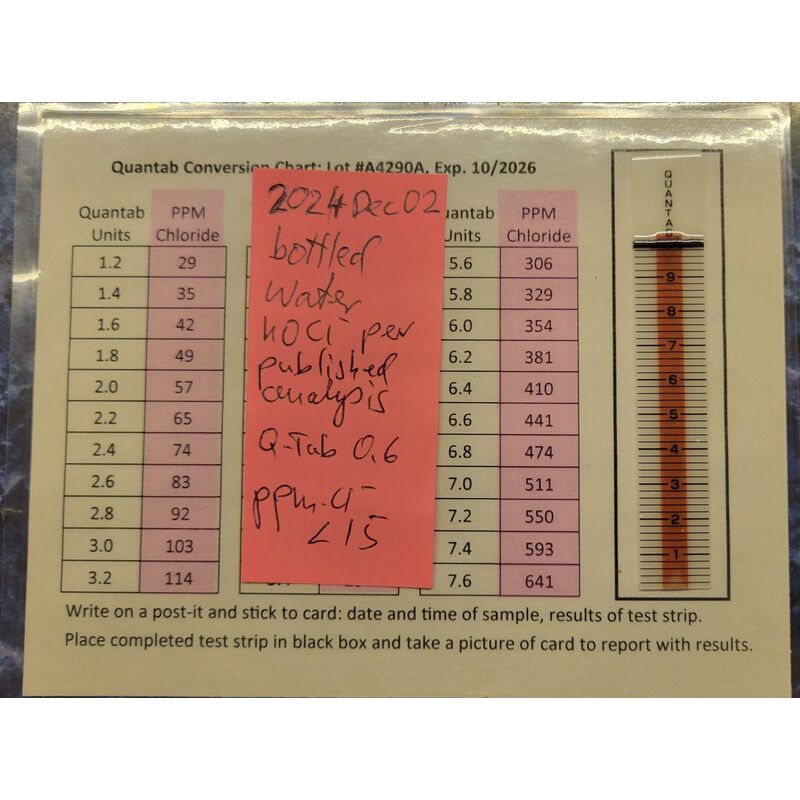 Quantab Conversion Chart: Lot #A4290A, Exp. 10/2026
Quantab Units PPM Chloride
1.2 29
1.4 35
1.6 42
1.8 49
2.0 57
2.2 65
2.4 74
2.6 83
2.8 92
3.0 103
3.2 114
2024 Dec 02
bottled
water
no Cl- per
published
analysis
Q-Tab 0.6
ppm Cl-
<15
uantab Units PPM Chloride
5.6 306
5.8 329
6.0 354
6.2 381
6.4 410
6.6 441
6.8 474
7.0 511
7.2 550
7.4 593
7.6 641
QUANTAB
9
8
7
6
5
4
3
2
1
Write on a post-it and stick to card: date and time of sample, results of test strip.
Place completed test strip in black box and take a picture of card to report with results.